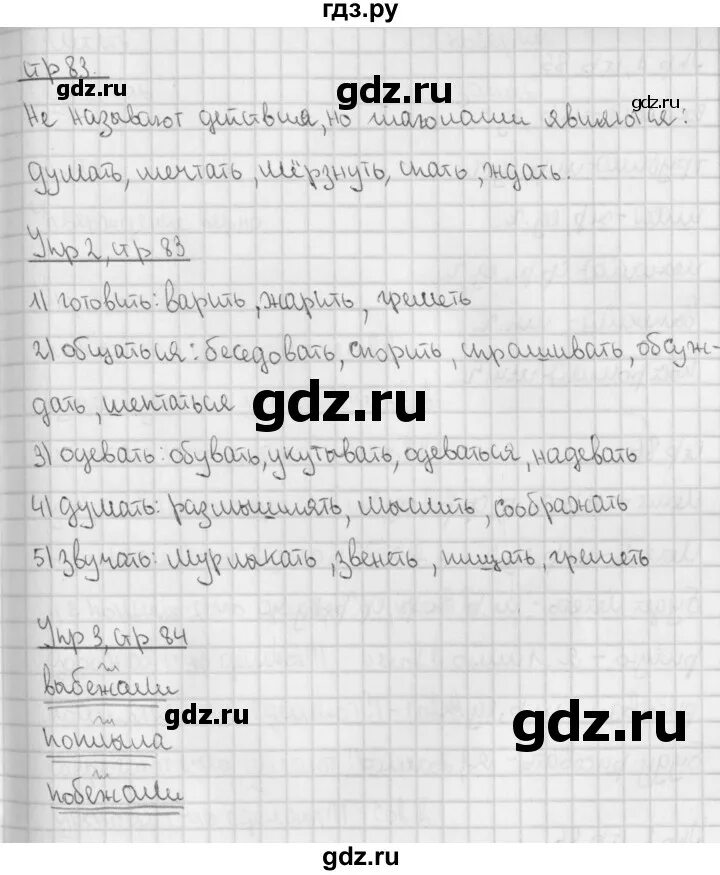 гдз.ру
стр 83.
gdz.ru gdz.ru gdz.ru
Не называют действия, но глаголами являются:
думать, мечтать, мёрзнуть, спать, ждать.
Упр 2, стр 83
1) готовить: варить, жарить, греметь
2) общаться: беседовать, спорить, спрашивать, обсуж-
дать, шептаться
gdz.ru
3) одевать: обувать, укутывать, одеваться, надевать
4) думать: размышлять, мыслить, соображать
5) звучать: мурлыкать, звенеть, пищать, греметь
Упр 3, стр 84
выбежали
gdz.ru gdz.ru
поплыла
побежали
gdz.ru
gdz.ru